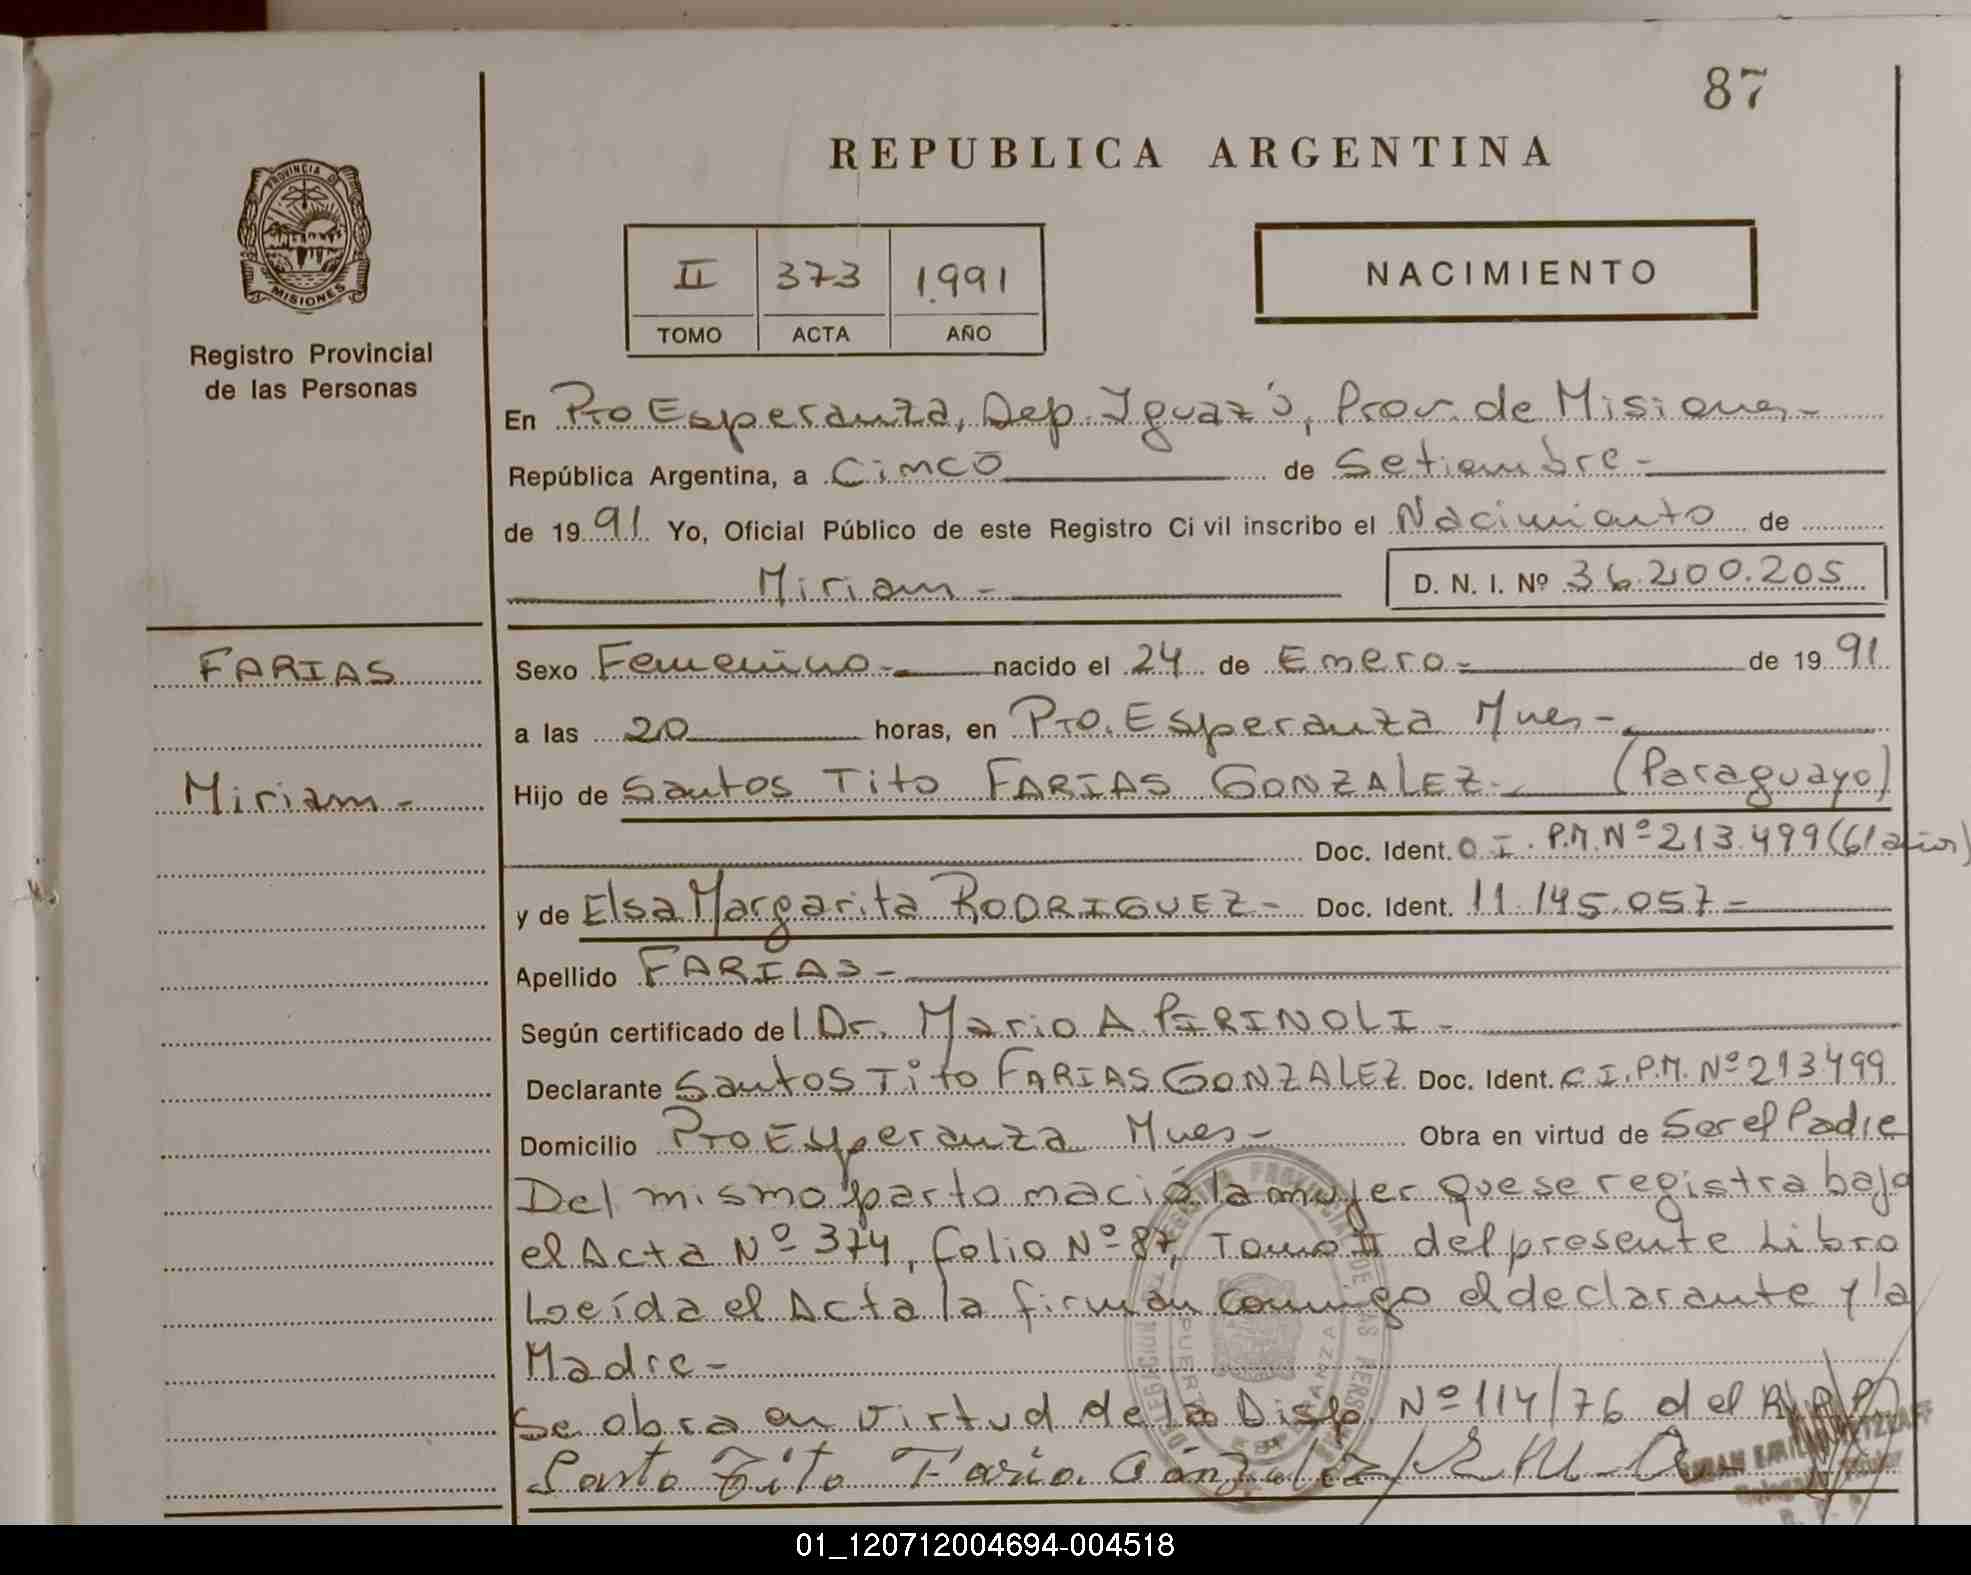 87
REPUBLICA ARGENTINA
PROVINCIA DE
MISIONES
Registro Provincial
de las Personas
II 373 1.991
TOMO ACTA AÑO
NACIMIENTO
En Pto Esperanza, Dep. Iguazú, Prov. de Misiones-
República Argentina, a Cinco de Setiembre-
de 1991 Yo, Oficial Público de este Registro Civil inscribo el Nacimiento de
Miriam- D. N. I. Nº 36.200.205
FARIAS
Miriam-
Sexo Femenino- nacido el 24 de Enero- de 1991
a las 20 horas, en Pto. Esperanza Mnes-
Hijo de Santos Tito FARIAS GONZALEZ- (Paraguayo)
Doc. Ident. C.I. P.M. Nº 213.499 (61 años)
y de Elsa Margarita RODRIGUEZ- Doc. Ident. 11.145.057-
Apellido FARIAS-
Según certificado del Dr. Mario A PIRINOLI-
Declarante Santos Tito FARIAS GONZALEZ Doc. Ident. C.I. P.M. Nº 213499
Domicilio Pto Esperanza Mnes- Obra en virtud de Ser el Padre
Del mismo parto nació la mujer que se registra bajo
el Acta Nº 374, folio Nº 87, Tomo II del presente Libro
Leída el Acta la firman conmigo el declarante y la
Madre-
Se obra en virtud de la Disp. Nº 114/76 del R.P.P.
Santo Tito Faria Gónzalez
01_120712004694-004518